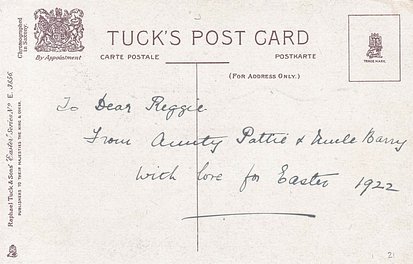 Chromographed
in Saxony.
By Appointment
TUCK'S POST CARD
CARTE POSTALE
POSTKARTE
(FOR ADDRESS ONLY.)
TRADE MARK
Raphael Tuck & Sons' "Easter" Series No E. 3656.
PUBLISHERS TO THEIR MAJESTIES THE KING & QUEEN.
To Dear Reggie
From Aunty Pattie & Uncle Barry
With love for Easter 1922
21